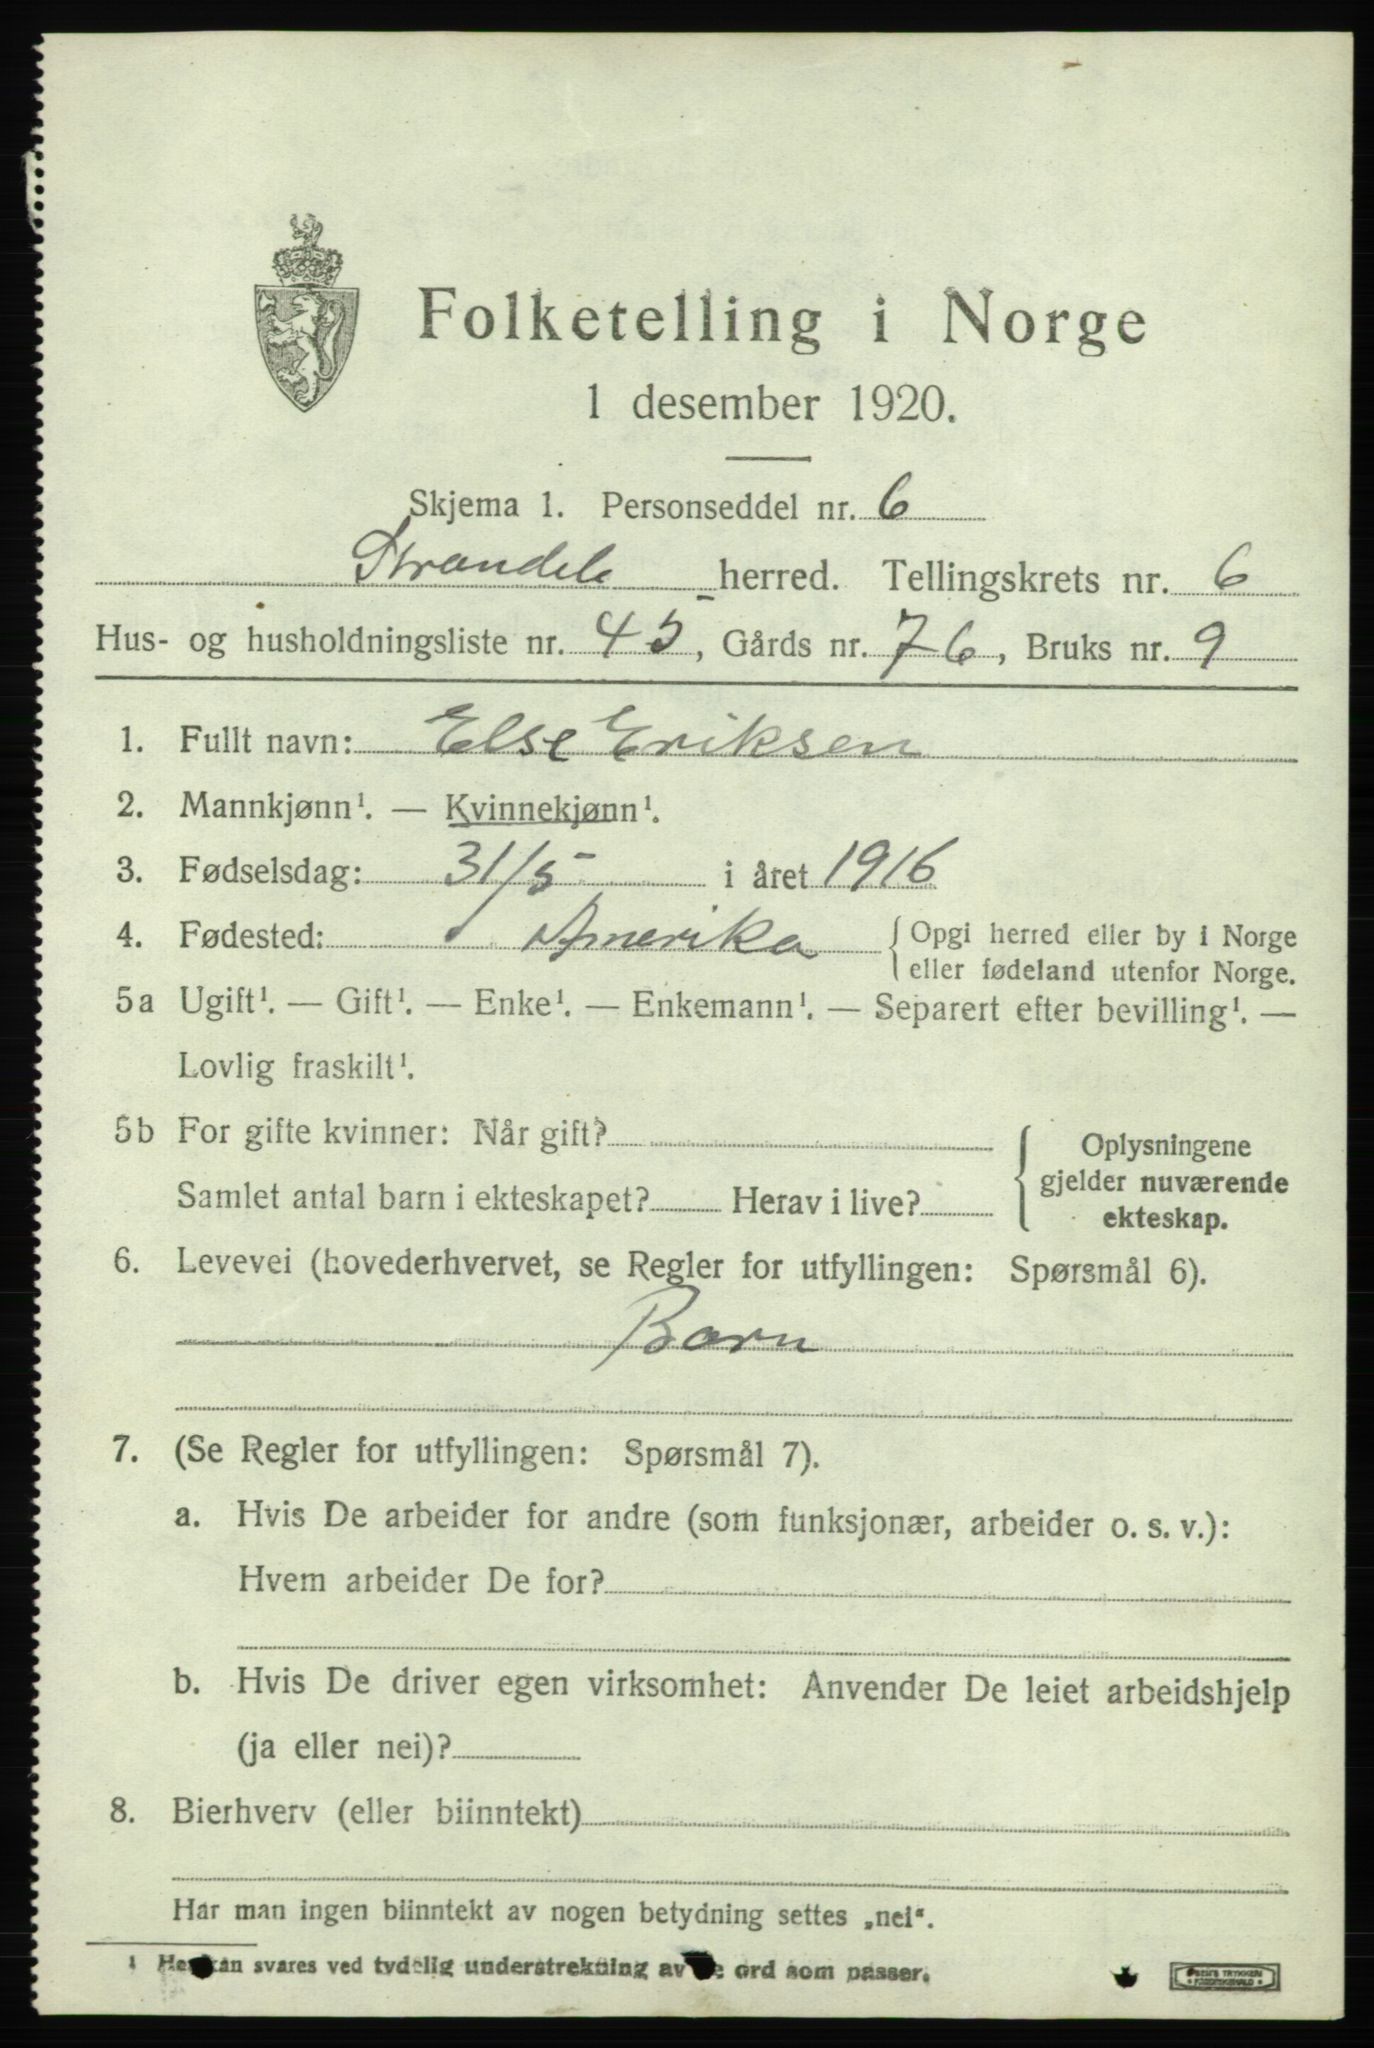 Folketelling i Norge
1 desember 1920.
Skjema 1. Personseddel nr. 6
Strandeb herred. Tellingskrets nr. 6
Hus- og husholdningsliste nr. 45, Gårds nr. 76, Bruks nr. 9
1. Fullt navn: Else Eriksen
2. Mannkjønn¹. — Kvinnekjønn¹.
3. Fødselsdag: 31/5 i året 1916
4. Fødested: Amerika { Opgi herred eller by i Norge
eller fødeland utenfor Norge.
5a Ugift¹. — Gift¹. — Enke¹. — Enkemann¹. — Separert efter bevilling¹. —
Lovlig fraskilt¹.
5b For gifte kvinner: Når gift?
Samlet antal barn i ekteskapet? Herav i live?
Oplysningene
gjelder nuværende
ekteskap.
6. Levevei (hovederhvervet, se Regler for utfyllingen: Spørsmål 6).
Barn
7. (Se Regler for utfyllingen: Spørsmål 7).
a. Hvis De arbeider for andre (som funksjonær, arbeider o. s. v.):
Hvem arbeider De for?
b. Hvis De driver egen virksomhet: Anvender De leiet arbeidshjelp
(ja eller nei)?
8. Bierhverv (eller biinntekt)
Har man ingen biinntekt av nogen betydning settes „nei“.
¹ Her kan svares ved tydelig understrekning av de ord som passer.